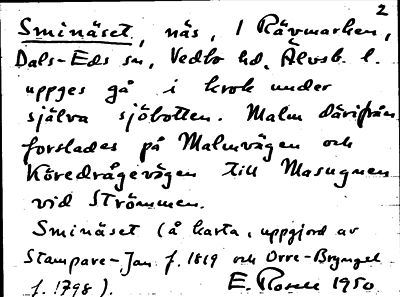 2
Sminäset, näs, i Rävmarken,
Dals-Eds sn, Vedbo hd, Älvsb. l.
uppges gå i krok under
själva sjöbotten. Malm därifrån
forslades på Malmvägen och
Köredrågevägen till Masugnen
vid Strömmen.
Sminäset (å karta, uppgjord av
Stampare-Jan f. 1819 och Orre-Bryngel
f. 1798). E. Rosell 1950